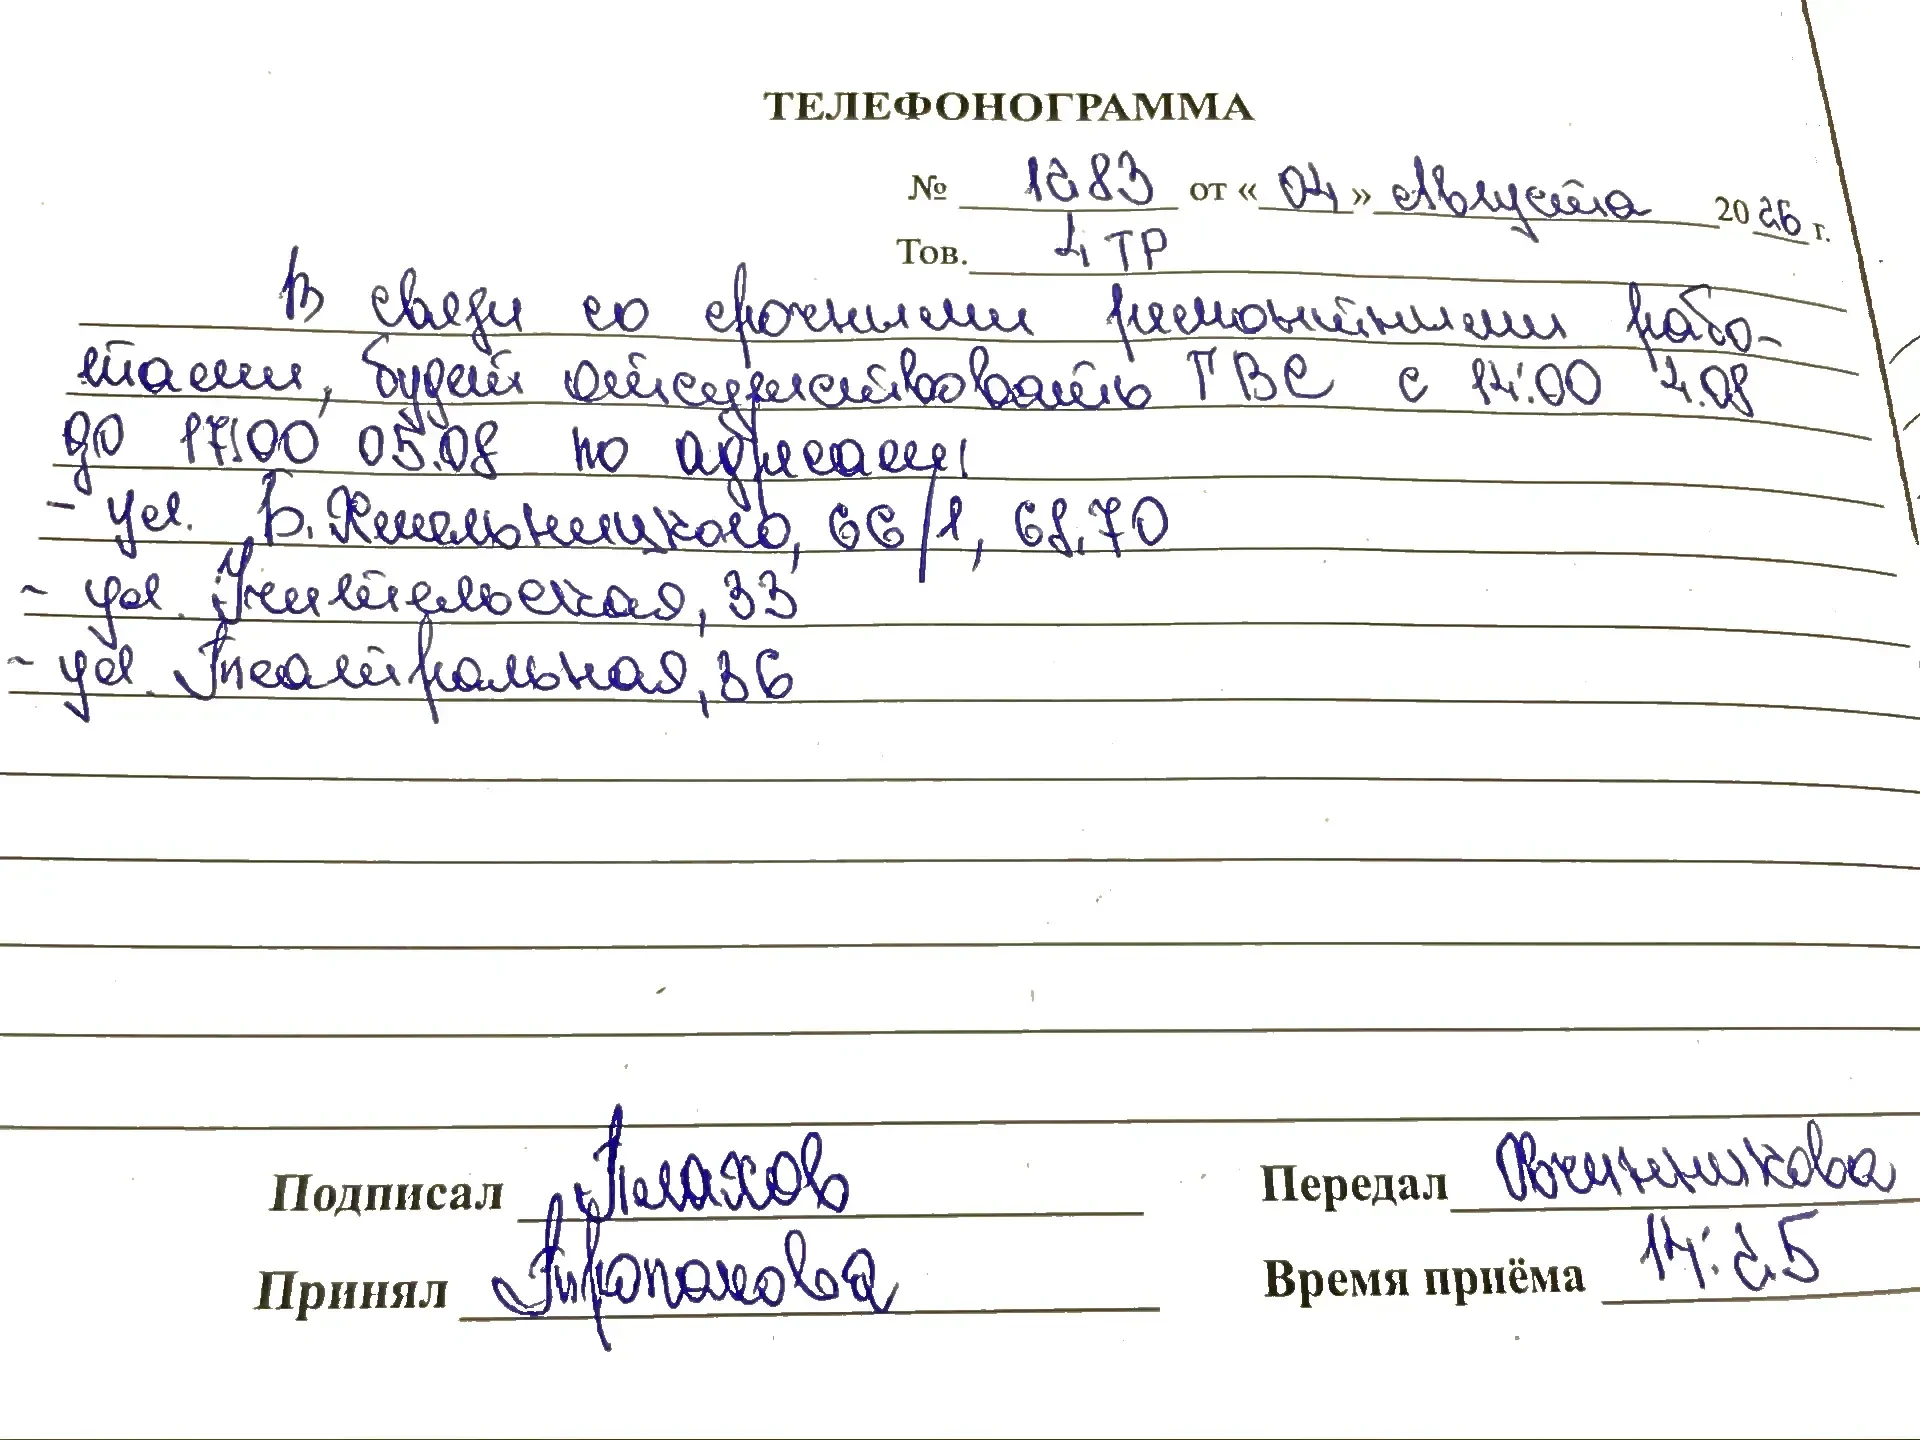 ТЕЛЕФОНОГРАММА
№ 1283 от « 04 » Августа 2026 г.
Тов. 4 ТР
В связи со срочными ремонтными рабо-
тами, будет отсутствовать ГВС с 14:00 4.08
до 17:00 05.08 по адресам:
- ул. Б. Хмельницкого, 66/1, 68, 70
- ул. Учительская, 33
- ул. Театральная, 36
Подписал Плахов Передал Овчинникова
Принял Время приёма 14:25